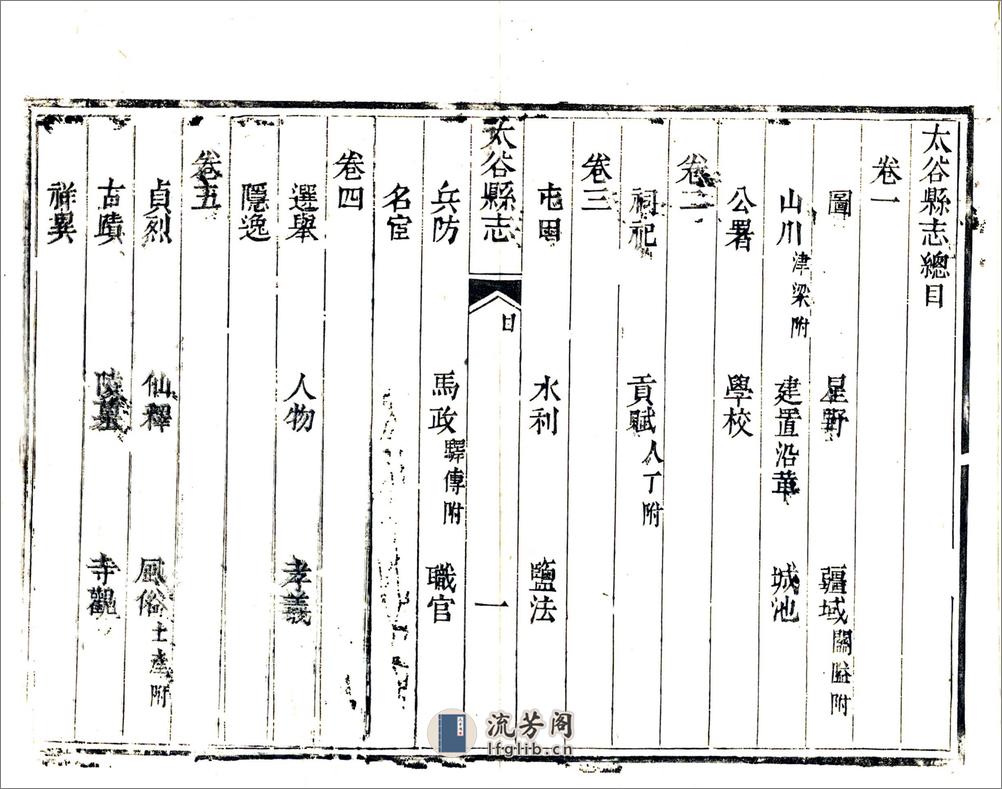 太谷縣志總目
卷一
圖　星野　疆域關隘附
山川津梁附　建置沿革　城池
公署　學校
卷二
祠祀　貢賦人丁附
卷三
屯田　水利　鹽法
太谷縣志　目　一
兵防　馬政驛傳附　職官
名宦
卷四
選舉　人物　孝義
隱逸
卷五
貞烈　仙釋　風俗土產附
古蹟　陵墓　寺觀
祥異
流芳阁
lfglib.cn